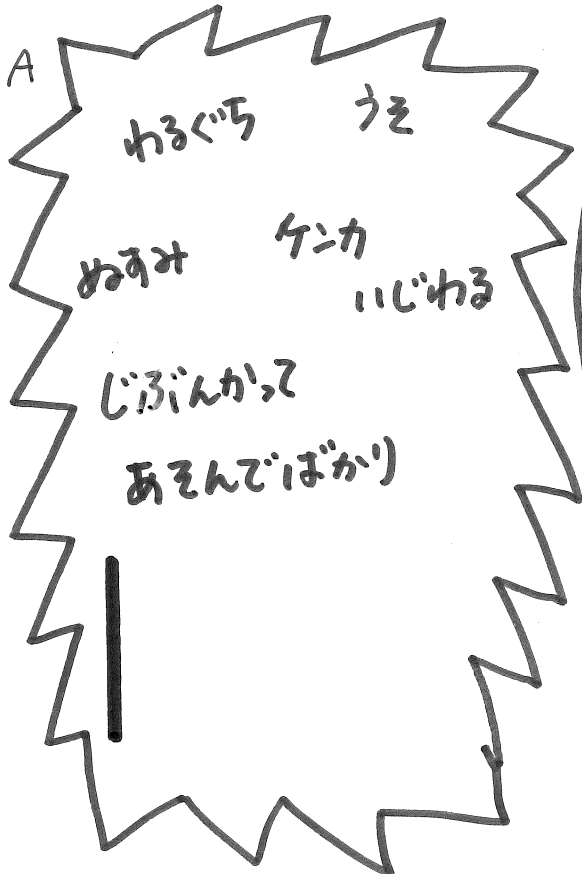 A
わるぐち
うそ
ケンカ
ぬすみ
いじわる
じぶんかって
あそんでばかり